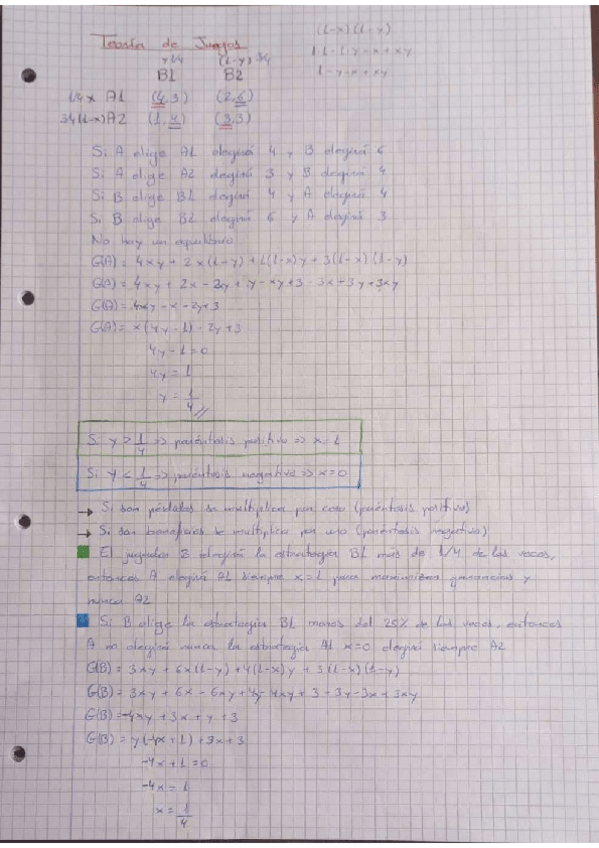 Teoría de Juegos
(1-x)(1-y)
1·1-1·y-x+xy
1-y-x+xy
y 1/4 (1-y) 3/4
B1 B2
1/4 x A1 (4,3) (2,6)
3/4 (1-x) A2 (1,4) (3,3)
Si A elige A1 elegirá 4 y B elegirá 6
Si A elige A2 elegirá 3 y B elegirá 4
Si B elige B1 elegirá 4 y A elegirá 4
Si B elige B2 elegirá 6 y A elegirá 3
No hay un equilibrio
G(A) = 4xy + 2x(1-y) + 1(1-x)y + 3(1-x)(1-y)
G(A) = 4xy + 2x - 2xy + y - xy + 3 - 3x - 3y + 3xy
G(A) = 4xy - x - 2y + 3
G(A) = x(4y - 1) - 2y + 3
4y - 1 = 0
4y = 1
y = 1/4
Si y > 1/4 => paréntesis positivo => x = 1
Si y < 1/4 => paréntesis negativo => x = 0
→ Si son pérdidas se multiplica por cero (paréntesis positivo)
→ Si son beneficios se multiplica por uno (paréntesis negativo)
El jugador B elegirá la estrategia B1 más de 1/4 de las veces,
entonces A elegirá A1 siempre x=1 para maximizar ganancias y
nunca A2
Si B elige la estrategia B1 menos del 25% de las veces, entonces
A no elegirá nunca la estrategia A1 x=0 elegirá siempre A2
G(B) = 3xy + 6x(1-y) + 4(1-x)y + 3(1-x)(1-y)
G(B) = 3xy + 6x - 6xy + 4y - 4xy + 3 - 3y - 3x + 3xy
G(B) = -4xy + 3x + y + 3
G(B) = y(-4x + 1) + 3x + 3
-4x + 1 = 0
-4x = 1
x = 1/4